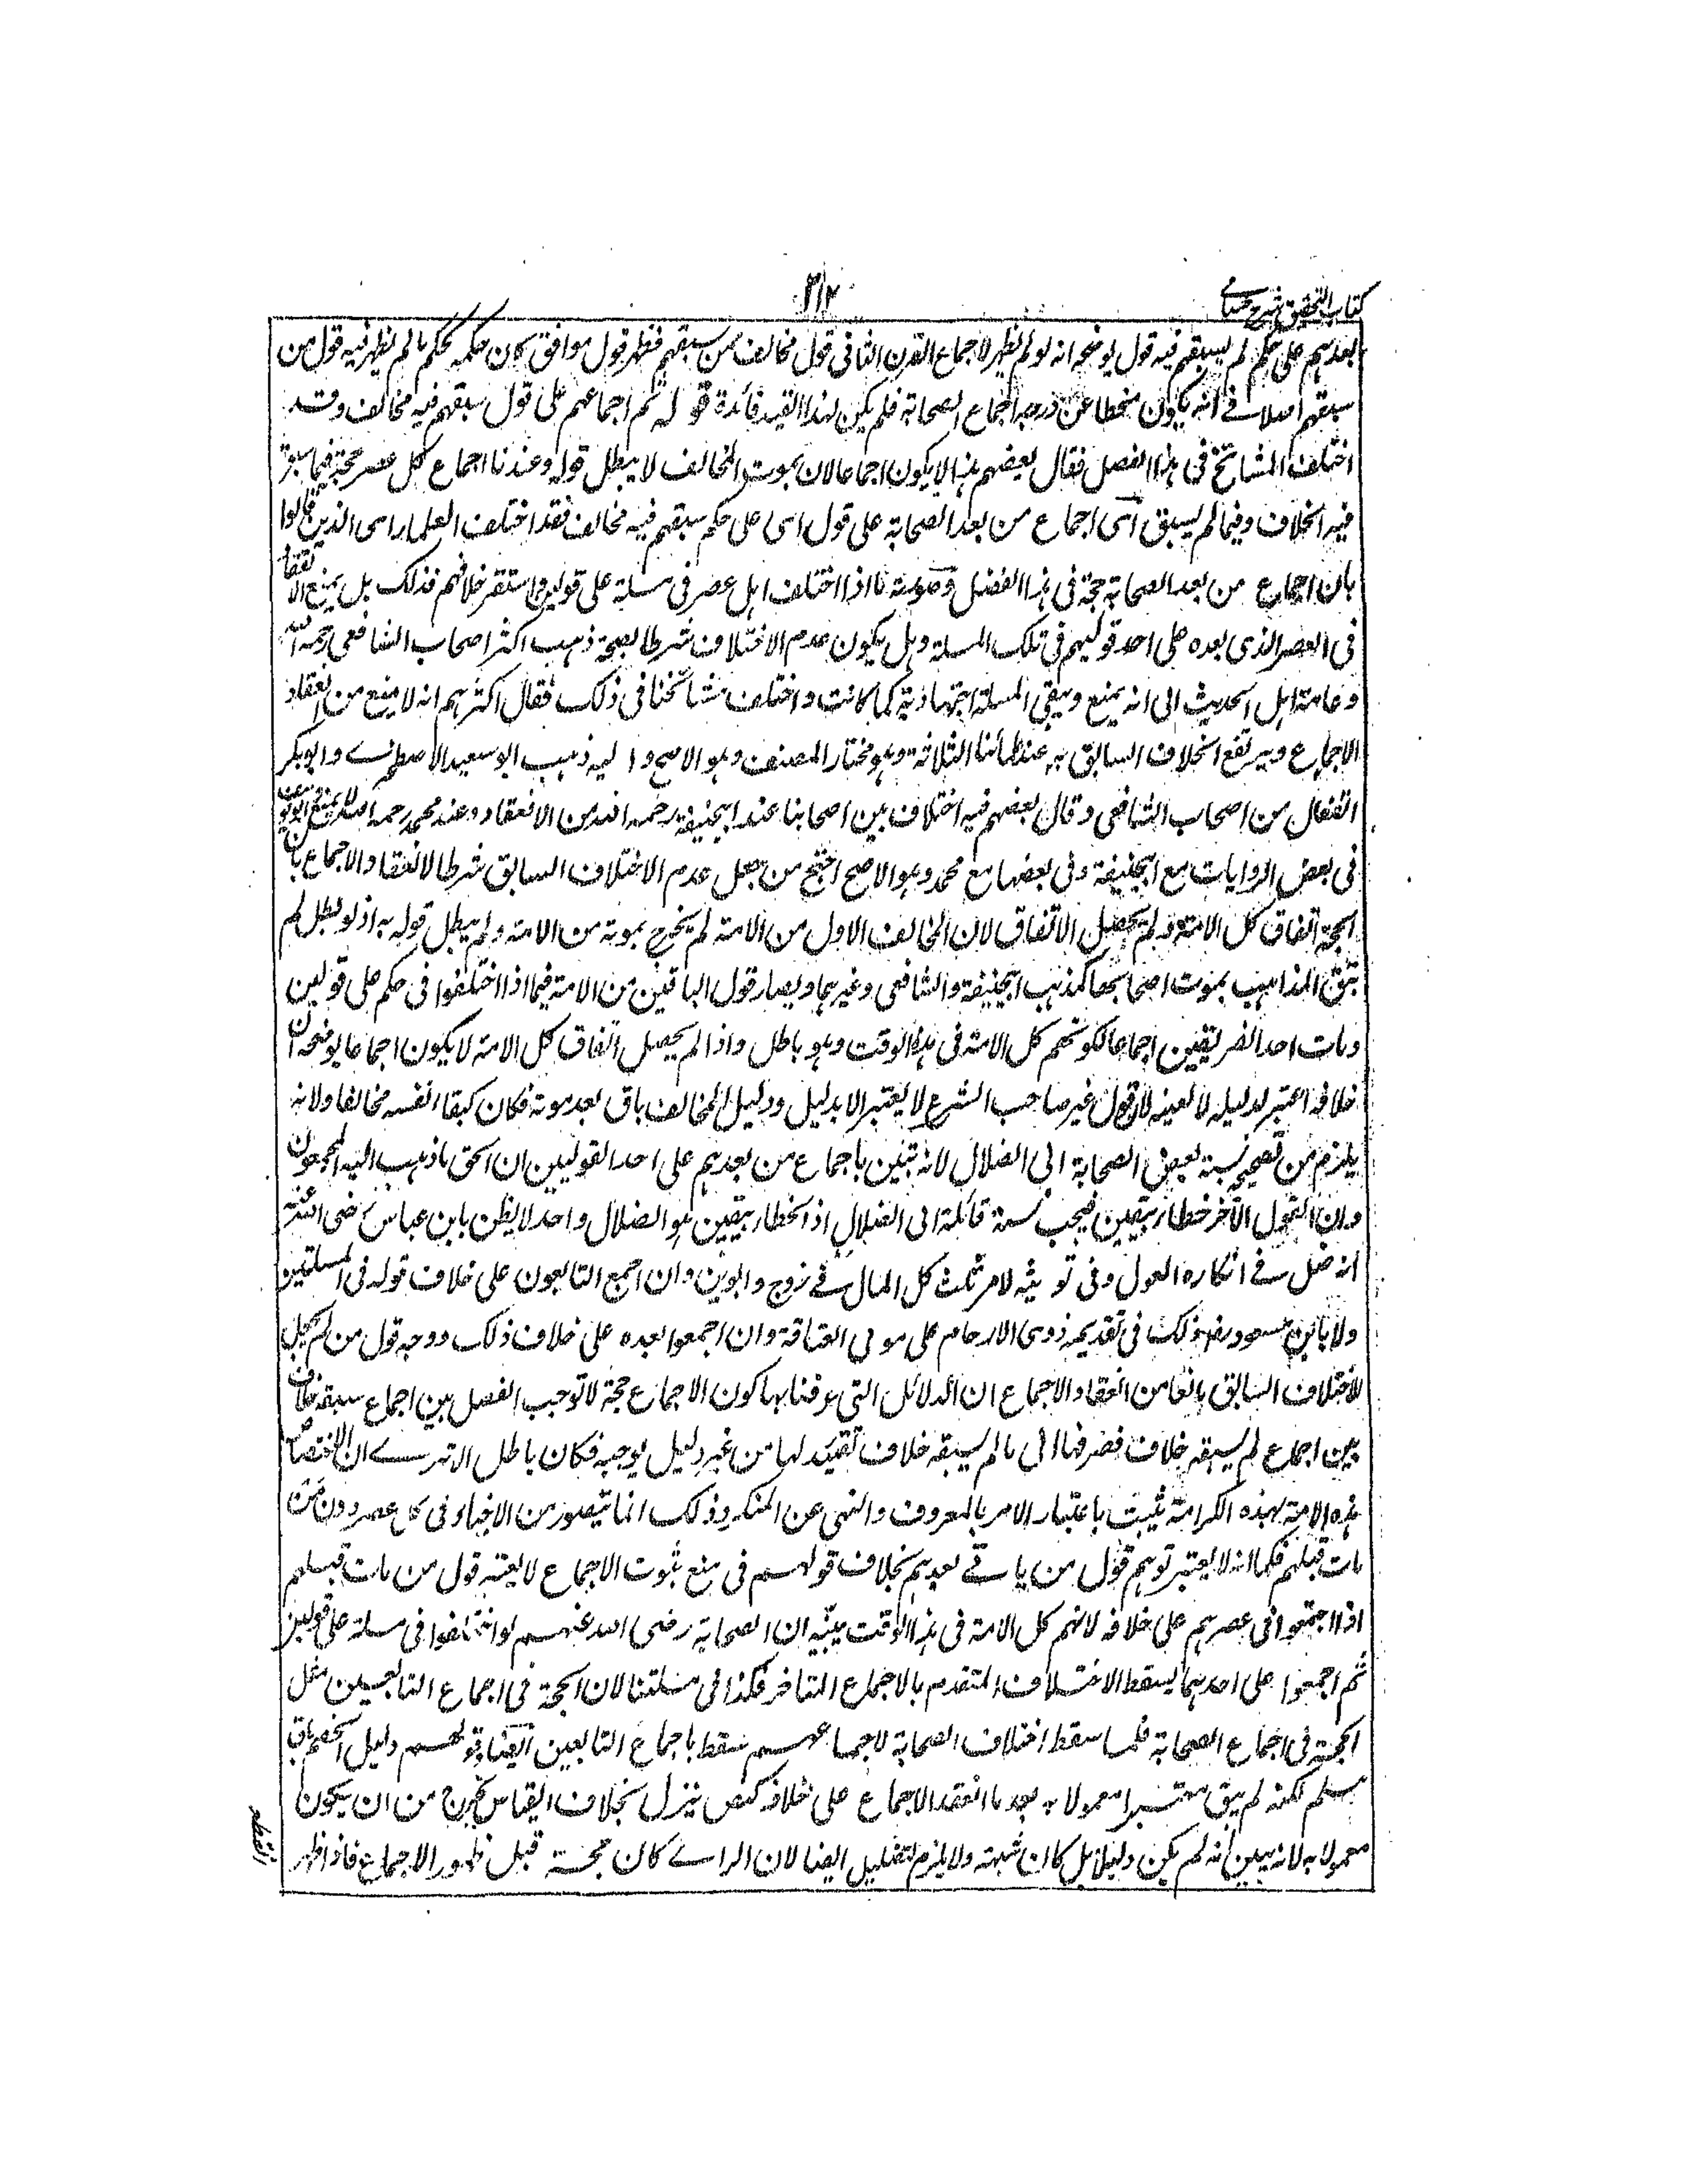 كتاب التحقيق شرح حسامي
٣١٢
بعدهم على حكم لم يسبقهم فيه قول يوضحه انه لو لم يظهر لاجماع القرن الثاني قول مخالف ممن سبقهم فظهر قول موافق كان حكمه كحكم ما لم يظهر فيه قول من
سبقهم اصلا في انه يكون منحطا عن درجة اجماع الصحابة فلم يكن لهذا القيد فائدة قوله ثم اجماعهم على قول سبقهم فيه مخالف وقد
اختلف المشائخ في هذا الفصل فقال بعضهم هذا لا يكون اجماعا لان بموت المخالف لا يبطل قوله وعندنا اجماع كل عصر حجة فيما سبق
فيه الخلاف وفيما لم يسبق اى اجماع من بعد الصحابة على قول اى على حكم سبقهم فيه مخالف فقد اختلف العلماء اى الذين قالوا
بان اجماع من بعد الصحابة حجة في هذا الفصل وصورته ما اذا اختلف اهل عصر في مسئلة على قولين واستقر خلافهم فذلك هل يمنع الاتفاق
في العصر الذى بعده على احد قوليهم في تلك المسئلة وهل يكون عدم الاختلاف شرطا لصحته ذهب اكثر اصحاب الشافعى رحمه الله
وعامة اهل الحديث الى انه يمنع ويبقى المسئلة اجتهادية كما كانت واختلف مشائخنا في ذلك فقال اكثرهم انه لا يمنع من انعقاد
الاجماع ويرتفع الخلاف السابق به عند علمائنا الثلاثة وهو مختار المصنف وهو الاصح واليه ذهب ابو سعيد الاصطخرى وابو بكر
القفال من اصحاب الشافعى وقال بعضهم فيه اختلاف بين اصحابنا عند ابيحنيفة رحمه الله من الانعقاد وعند محمد رحمه الله لا يمنع
في بعض الروايات مع ابيحنيفة وفى بعضها مع محمد وهو الاصح احتج من جعل عدم الاختلاف السابق شرطا لانعقاد الاجماع بان
الحجة اتفاق كل الامة ولم يحصل الاتفاق لان المخالف الاول من الامة لم يخرج بموته من الامة ولم يبطل قوله به اذ لو بطل لم
تبق المذاهب بموت اصحابها كمذهب ابيحنيفة والشافعى وغيرهما ويصار قول الباقين من الامة فيما اذا اختلفوا فى حكم على قولين
ومات احد الفريقين اجماعا لكونهم كل الامة فى هذه الوقت وهو باطل واذا لم يحصل اتفاق كل الامة لا يكون اجماعا يوضحه ان
خلافه اعتبر لدليله لا لعينه لان قول غير صاحب الشرع لا يعتبر الا بدليل ودليل المخالف باق بعد موته فكان كبقاء نفسه مخالفا ولانه
يلزم من تصحيحه نسبة بعض الصحابة الى الضلال لانه تبين باجماع من بعدهم على احد القولين ان الحق ما ذهب اليه المجمعون
وان القول الآخر خطاء بيقين فيجب نسبة قائله الى الضلال اذ الخطاء بيقين هو الضلال واحد لا يظن بابن عباس رضى الله عنه
انه ضل فى انكاره العول وفى توريثه لام ثلث كل المال فى زوج وابوين وان اجمع التابعون على خلاف قوله فى المسئلتين
ولا بابن مسعود رضـ ذلك فى تقديمه ذوى الارحام على مولى العتاقة وان اجمعوا بعده على خلاف ذلك ووجه قول من لم يجعل
الاختلاف السابق مانعا من انعقاد الاجماع ان الدلائل التى عرفنا بها كون الاجماع حجة لا توجب الفصل بين اجماع سبقه خلاف
بين اجماع لم يسبقه خلاف فصرفها الى ما لم يسبقه خلاف تقييد لها من غير دليل يوجبه فكان باطلا الا ترى ان الاختصاص
هذه الامة بهذه الكرامة ثبت باعتبار الامر بالمعروف والنهى عن المنكر وذلك انما يتصور من الاحياء فى كل عصر دون من
مات قبلهم فكما انه لا يعتبر توهم قول من ياتى بعدهم بخلاف قولهم فى منع ثبوت الاجماع لا يعتبر قول من مات قبلهم
اذا اجتمعوا فى عصرهم على خلافه لانهم كل الامة فى هذا الوقت يبينه ان الصحابة رضى الله عنهم لو اختلفوا فى مسئلة على قولين
ثم اجمعوا على احدهما يسقط الاختلاف المتقدم بالاجماع المتاخر فكذا فى مسئلتنا لان الحجة فى اجماع التابعين مثل
الحجة فى اجماع الصحابة فلما سقط اختلاف الصحابة لاجماعهم سقط باجماع التابعين ايضا وقولهم دليل الخصم باق
مسلم لكنه لم يبق معتبرا معمولا به بعد ما انعقد الاجماع على خلافه كنص نزل بخلاف القياس يخرج من ان يكون
معمولا به لانه يبين انه لم يكن دليلا بل كان شبهة ولا يلزم التضليل ايضا لان الراى كان حجة قبل ظهور الاجماع فاذا ظهر